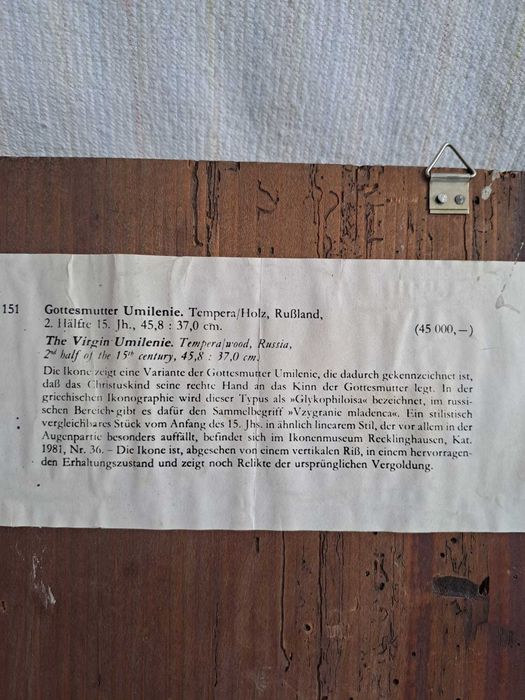 151 Gottesmutter Umilenie. Tempera/Holz, Rußland,
2. Hälfte 15. Jh., 45,8 : 37,0 cm. (45 000,—)
The Virgin Umilenie. Tempera/wood, Russia,
2nd half of the 15th century, 45,8 : 37,0 cm.
Die Ikone zeigt eine Variante der Gottesmutter Umilenie, die dadurch gekennzeichnet ist,
daß das Christuskind seine rechte Hand an das Kinn der Gottesmutter legt. In der
griechischen Ikonographie wird dieser Typus als »Glykophiloisa« bezeichnet, im russi-
schen Bereich gibt es dafür den Sammelbegriff »Vzygranie mladenca«. Ein stilistisch
vergleichbares Stück vom Anfang des 15. Jhs. in ähnlich linearem Stil, der vor allem in der
Augenpartie besonders auffällt, befindet sich im Ikonenmuseum Recklinghausen, Kat.
1981, Nr. 36. – Die Ikone ist, abgesehen von einem vertikalen Riß, in einem hervorragen-
den Erhaltungszustand und zeigt noch Relikte der ursprünglichen Vergoldung.